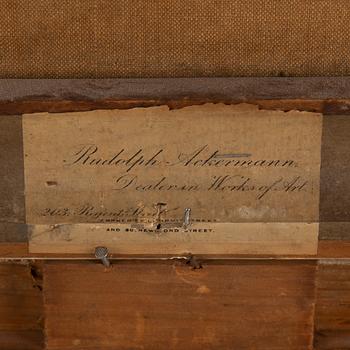 Rudolph Ackermann,
Dealer in Works of Art.
Regent Street
AND 80, NEW BOND STREET.